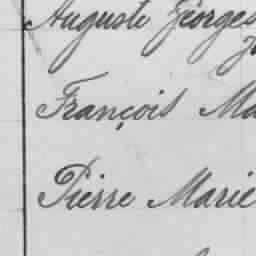 Auguste Georges
François Ma
Pierre Marie